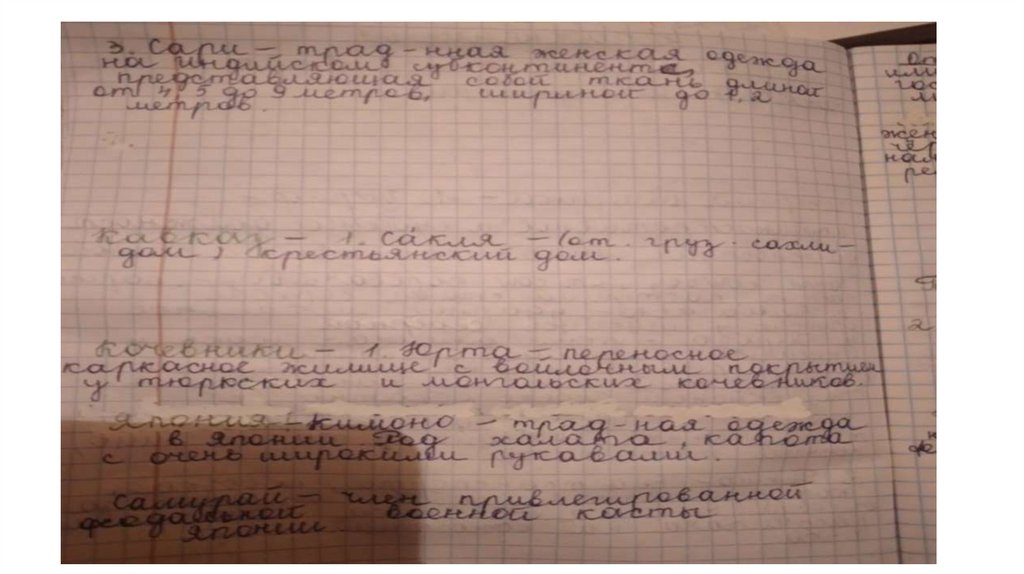 3. Сари – трад-нная женская одежда
на индийском субконтиненте,
представляющая собой ткань длиной
от 4,5 до 9 метров, шириной до 1,2
метров.
Кавказ – 1. са́кля – (от. груз. сахли –
дом) крестьянский дом.
Кочевники – 1. Юрта – переносное
каркасное жилище с войлочным покрытием
у тюркских и монгольских кочевников.
Япония – кимоно – трад-ная одежда
в японии род халата, капота
с очень широкими рукавами.
Самурай – член привлегированной
феодальной военной касты
японии